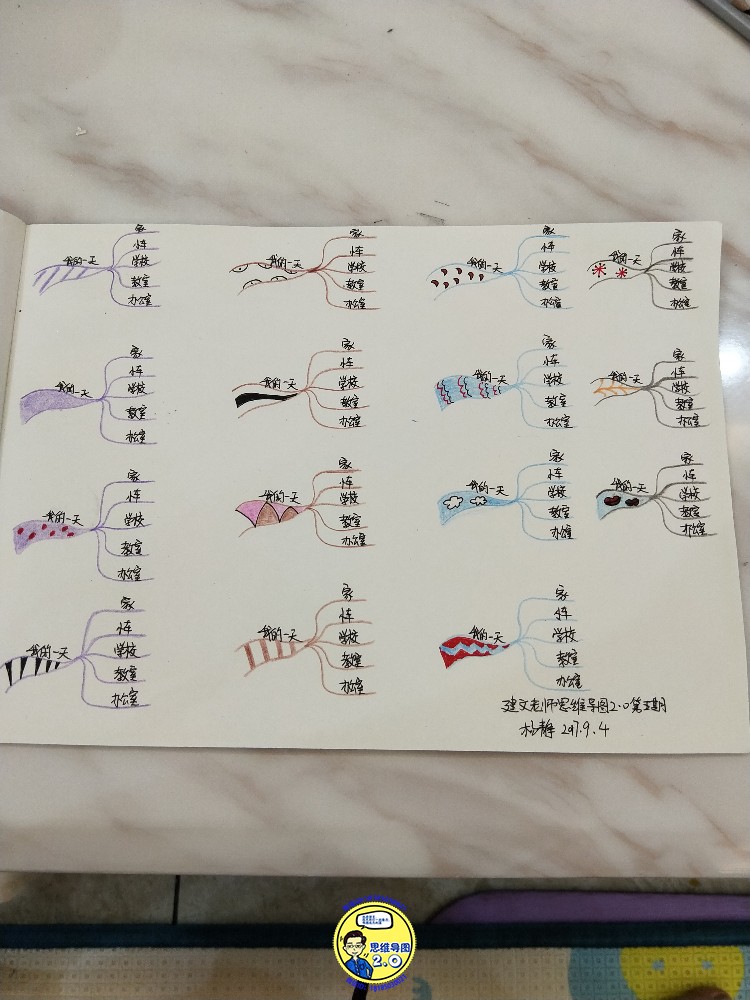 我的一天
家
忄车
学校
教室
办公室
我的一天
家
忄车
学校
教室
办公室
我的一天
家
忄车
学校
教室
办公室
我的一天
家
忄车
学校
教室
办公室
我的一天
家
忄车
学校
教室
办公室
我的一天
家
忄车
学校
教室
办公室
我的一天
家
忄车
学校
教室
办公室
我的一天
家
忄车
学校
教室
办公室
我的一天
家
忄车
学校
教室
办公室
我的一天
家
忄车
学校
教室
办公室
我的一天
家
忄车
学校
教室
办公室
我的一天
家
忄车
学校
教室
办公室
我的一天
家
忄车
学校
教室
办公室
我的一天
家
忄车
学校
教室
办公室
我的一天
家
忄车
学校
教室
办公室
建文老师思维导图2.0第五期
杨静 2017.9.4
思维导图
2.0